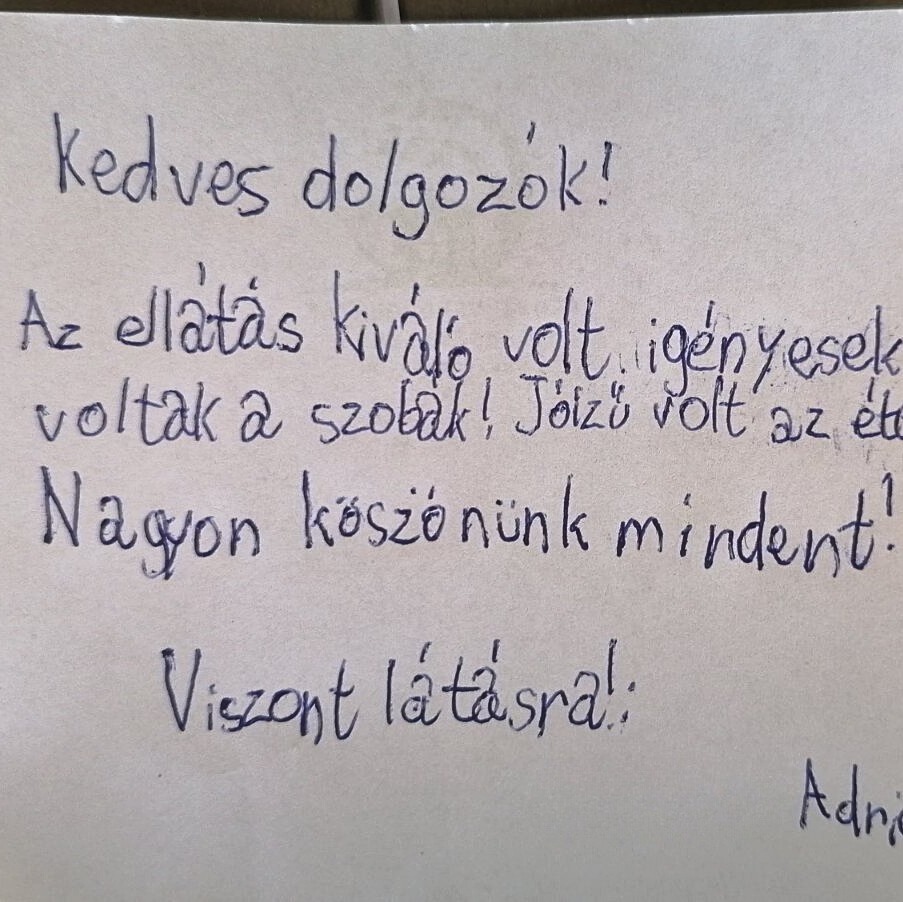 Kedves dolgozók!
Az ellátás kiváló volt, igényesek
voltak a szobák! Jóízű volt az
Nagyon köszönünk mindent!
Viszont látásra!: